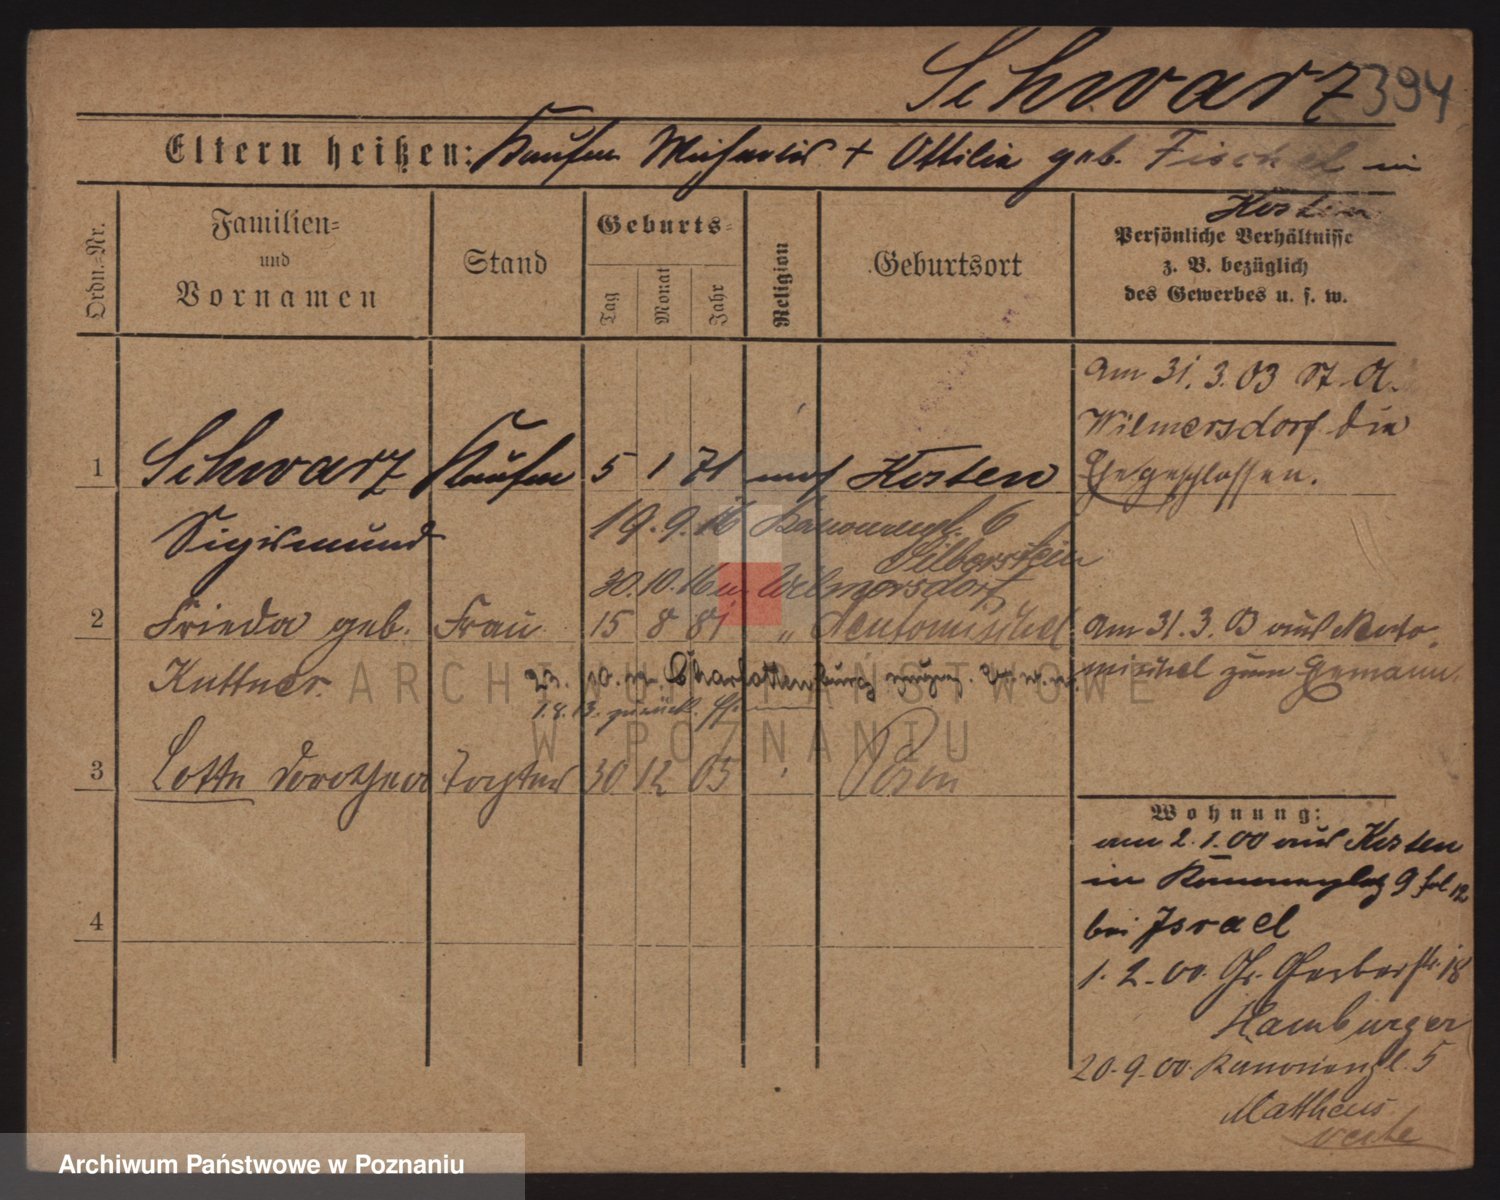 Schwarz 394
Eltern heißen: Kaufm Michaelis + Ottilie geb. Fischel in
Kosten
Ordn.-Nr.
Familien-
und
Vornamen
Stand
Geburts-
Tag
Monat
Jahr
Religion
Geburtsort
Persönliche Verhältnisse
z. B. bezüglich
des Gewerbes u. s. w.
am 31.3.03 St. A.
Wilmersdorf die
Ehe geschlossen.
1 Schwarz Kaufm 5 1 71 mos Kosten
Sigismund
19.9.16 Kanonenpl. 6
Silberstein
30.10.16 n. Wilmersdorf
2 Frieda geb. Frau 15 8 81 " Neutomischel
Kuttner
am 31.3.03 aus Neuto-
mischel zum Ehemann.
23. 10. Charlottenburg
1.8.13. zurück.
3 Lotte Dorothea Tochter 30 12 05 Posen
4
Wohnung:
am 2.1.00 aus Kosten
in Kanonenplatz 9
bei Israel
1.2.00. Gr. Gerberstr. 18
Hamburger
20.9.00. Kanonenpl. 5
Mattheus
ARCHIWUM PAŃSTWOWE
W POZNANIU
Archiwum Państwowe w Poznaniu